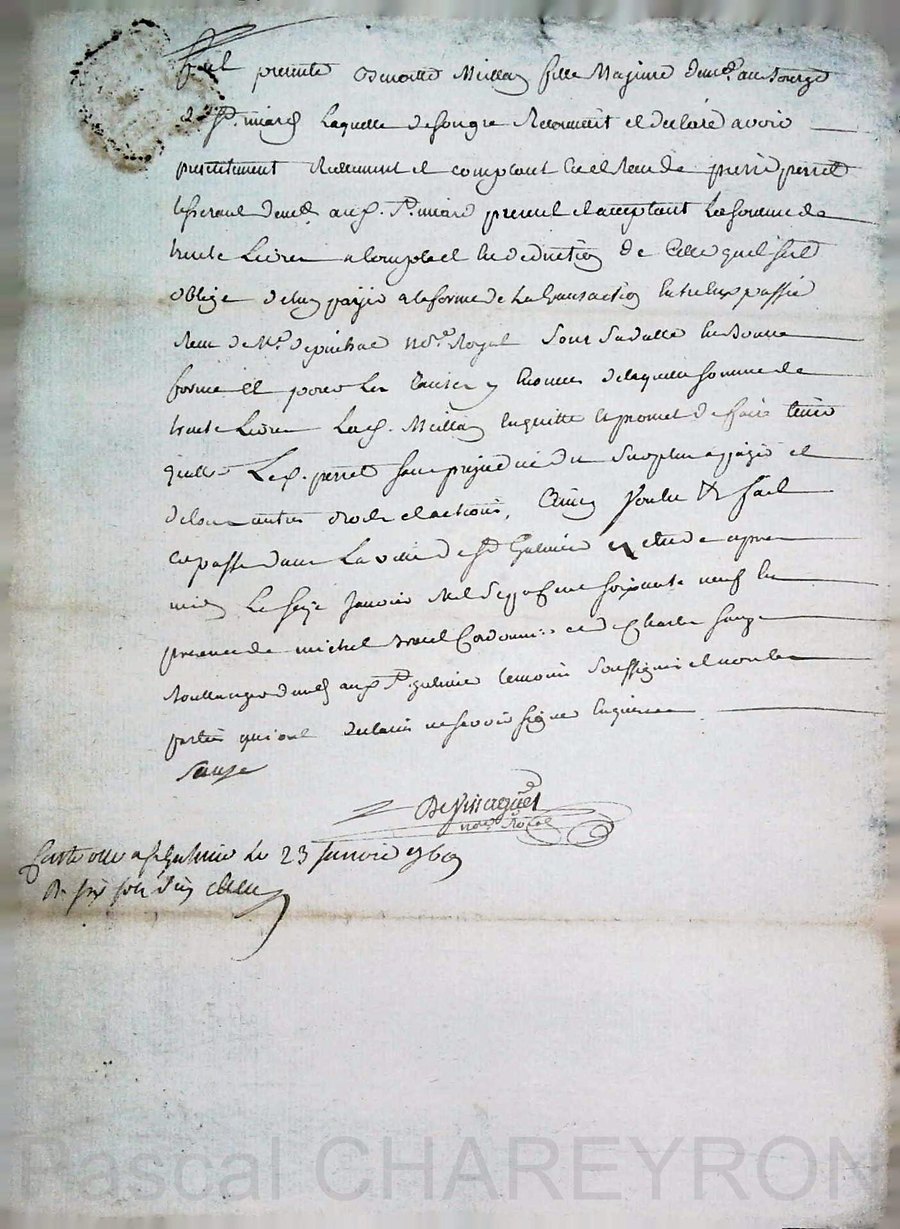 fut presente Benoitte Meilla fille Majeure dem.t au bourg
de St. miard Laquelle de son gre Reconnoit et declare avoir
presentement Reellement et comptant Recu de pierre perret
tisserand dem.t aud. St. miard present et acceptant La somme de
trente Livres a Compte et en deduction de Celle quil s'est
oblige de luy payer a la forme de La transaction Entre eux passée
Recue de Me. not.e Royal Sous Sa datte En Bonne
forme Et pour Les Causes y Enoncées de laquelle somme de
trente Livres Lad. Meilla En quitte et promet de faire tenir
quitte Led. perret sans prejudice du Surplus a payer et
de tous autres droits et actions, Ainsy Voulu & fait
et passé dans La ville de St. Galmier Etude apres
midy Le seize Janvier Mil Sept Cent soixante neuf En
presence de michel Cordonnier et de Charle Sauze
Boullanger dem.t aud. St. galmier temoins Soussignés et non les
parties qui ont declaré ne scavoir signer Enquises
Sauze
not.e Royal
Controllé a St Galmier Le 23 Janvier 1769
R. six sols
Pascal CHAREYRON